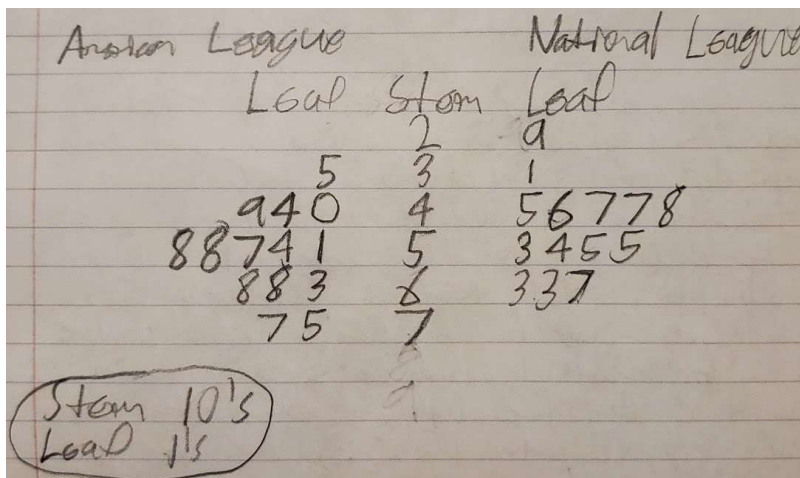 League National League
Leaf Stem Leaf
2 9
5 3 1
940 4 56778
88741 5 3455
883 6 337
75 7
Stem 10's
Leaf 1's